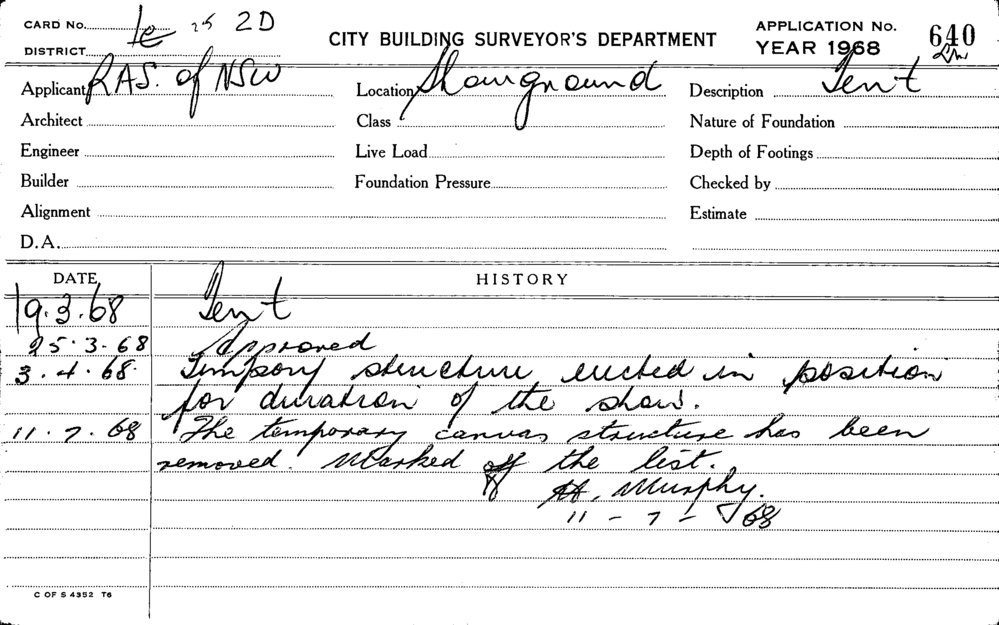 CARD No. 1c 25 2D
DISTRICT
CITY BUILDING SURVEYOR'S DEPARTMENT
APPLICATION No. 640
YEAR 1968
Applicant RAS. of NSW
Location Showground
Description Tent
Architect
Class
Nature of Foundation
Engineer
Live Load
Depth of Footings
Builder
Foundation Pressure
Checked by
Alignment
Estimate
D.A.
DATE HISTORY
19.3.68 Tent
25.3.68 Approved
3.4.68. Tempory structure erected in position
for duration of the show.
11.7.68 The temporary canvas structure has been
removed. Marked off the list.
H. Murphy.
11-7-68
C OF S 4352 T6